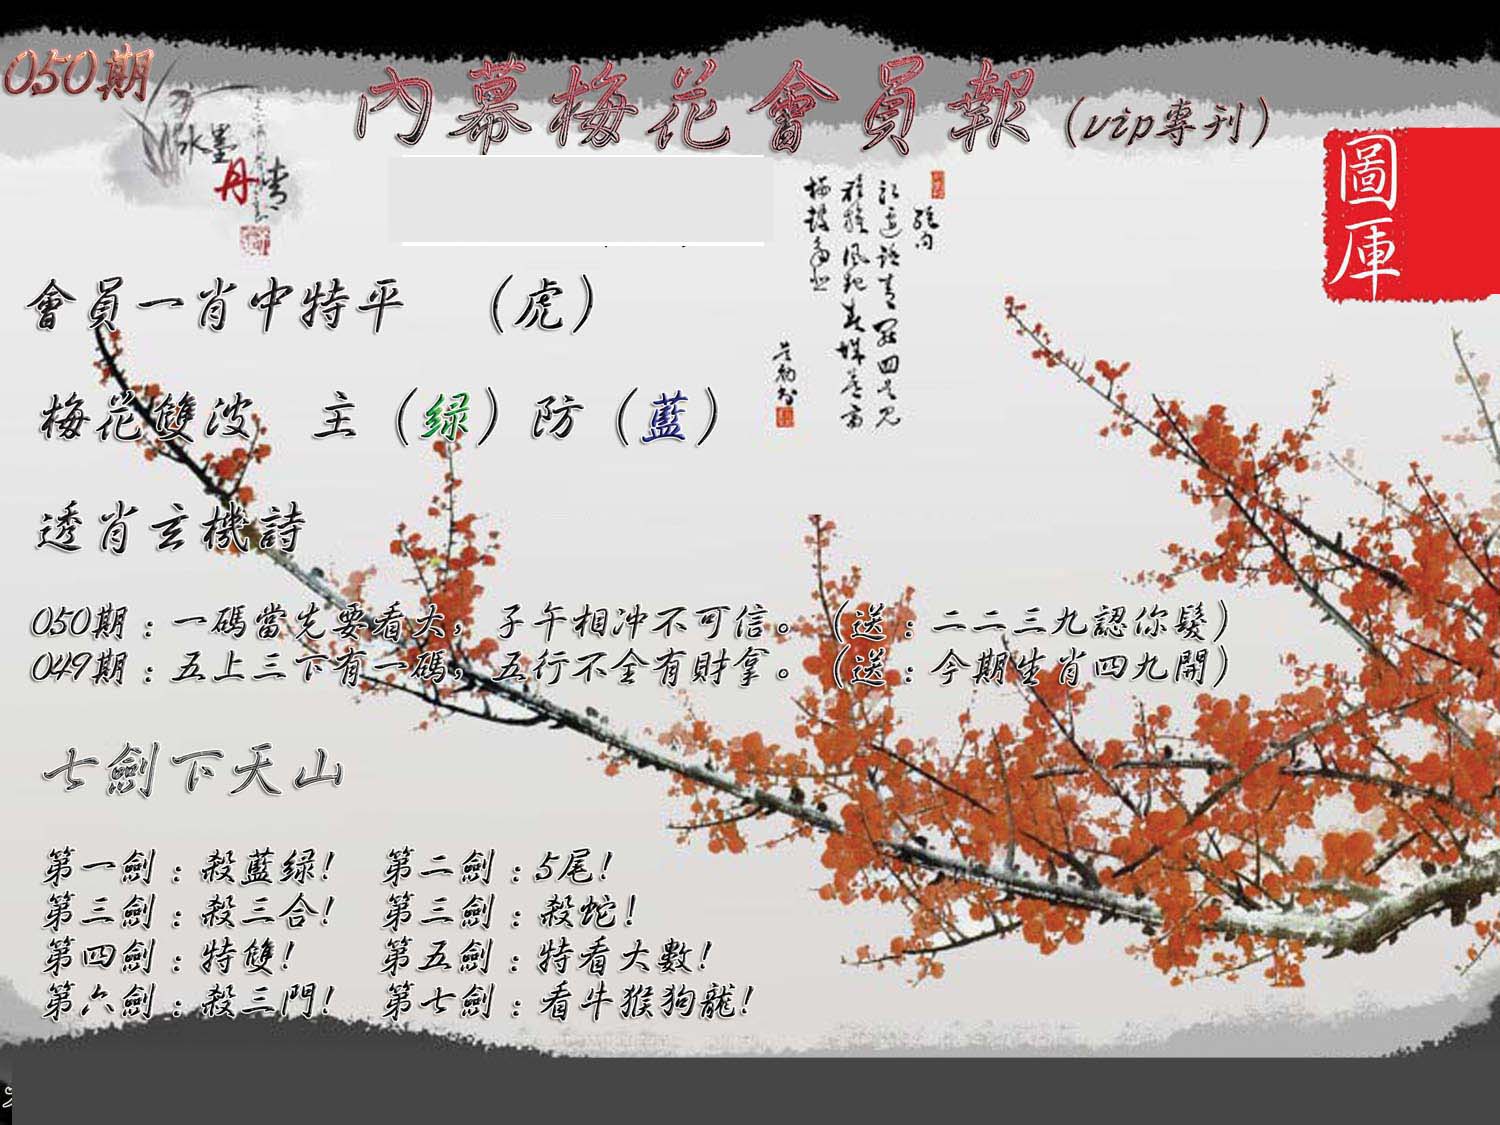 050期
內幕梅花會員報（vip專刊）
水墨
丹青
圖庫
會員一肖中特平　（虎）
梅花雙波　主（绿）防（藍）
透肖玄機詩
050期：一碼當先要看大，子午相沖不可信。（送：二二三九認你髮）
049期：五上三下有一碼，五行不全有財拿。（送：今期生肖四九開）
七劍下天山
第一劍：殺藍绿！　第二劍：5尾！
第三劍：殺三合！　第三劍：殺蛇！
第四劍：特雙！　第五劍：特看大數！
第六劍：殺三門！　第七劍：看牛猴狗龍！